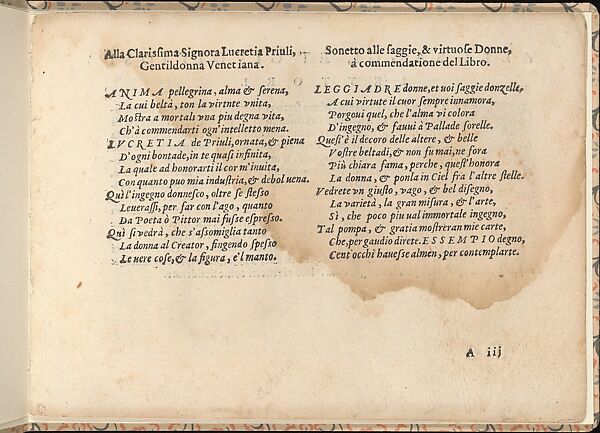 Alla Clarissima Signora Lucretia Priuli,
Gentildonna Venetiana.
ANIMA pellegrina, alma & serena,
La cui beltà, con la virtute vnita,
Mostra a mortali vna piu degna vita,
Ch'à commendarti ogn'intelletto mena.
LVCRETIA de Priuli, ornata, & piena
D'ogni bontade, in te quasi infinita,
La quale ad honorarti il cor m'inuita,
Con quanto puo mia industria, & debol vena.
Quì l'ingegno donnesco, oltre se stesso
Leuerassi, per far con l'ago, quanto
Da Poeta ò Pittor mai fusse espresso.
Quì si vedrà, che s'assomiglia tanto
La donna al Creator, fingendo spesso
Le vere cose, & la figura, e'l manto.
Sonetto alle saggie, & virtuose Donne,
à commendatione del Libro.
LEGGIADRE donne, et uoi saggie donzelle,
A cui virtute il cuor sempre innamora,
Porgoui quel, che l'alma vi colora
D'ingegno, & fauui à Pallade sorelle.
Quest'è il decoro delle altere, & belle
Vostre beltadi, & non fu mai, ne fora
Più chiara fama, perche, quest'honora
La donna, & ponla in Ciel fra l'altre stelle.
Vedrete vn giusto, vago, & bel disegno,
La varietà, la gran misura, & l'arte,
Sì, che poco piu ual immortale ingegno,
Tal pompa, & gratia mostreran mie carte,
Che, per gaudio direte. ESSEMPIO degno,
Cent'occhi hauesse almen, per contemplarte.
A iij